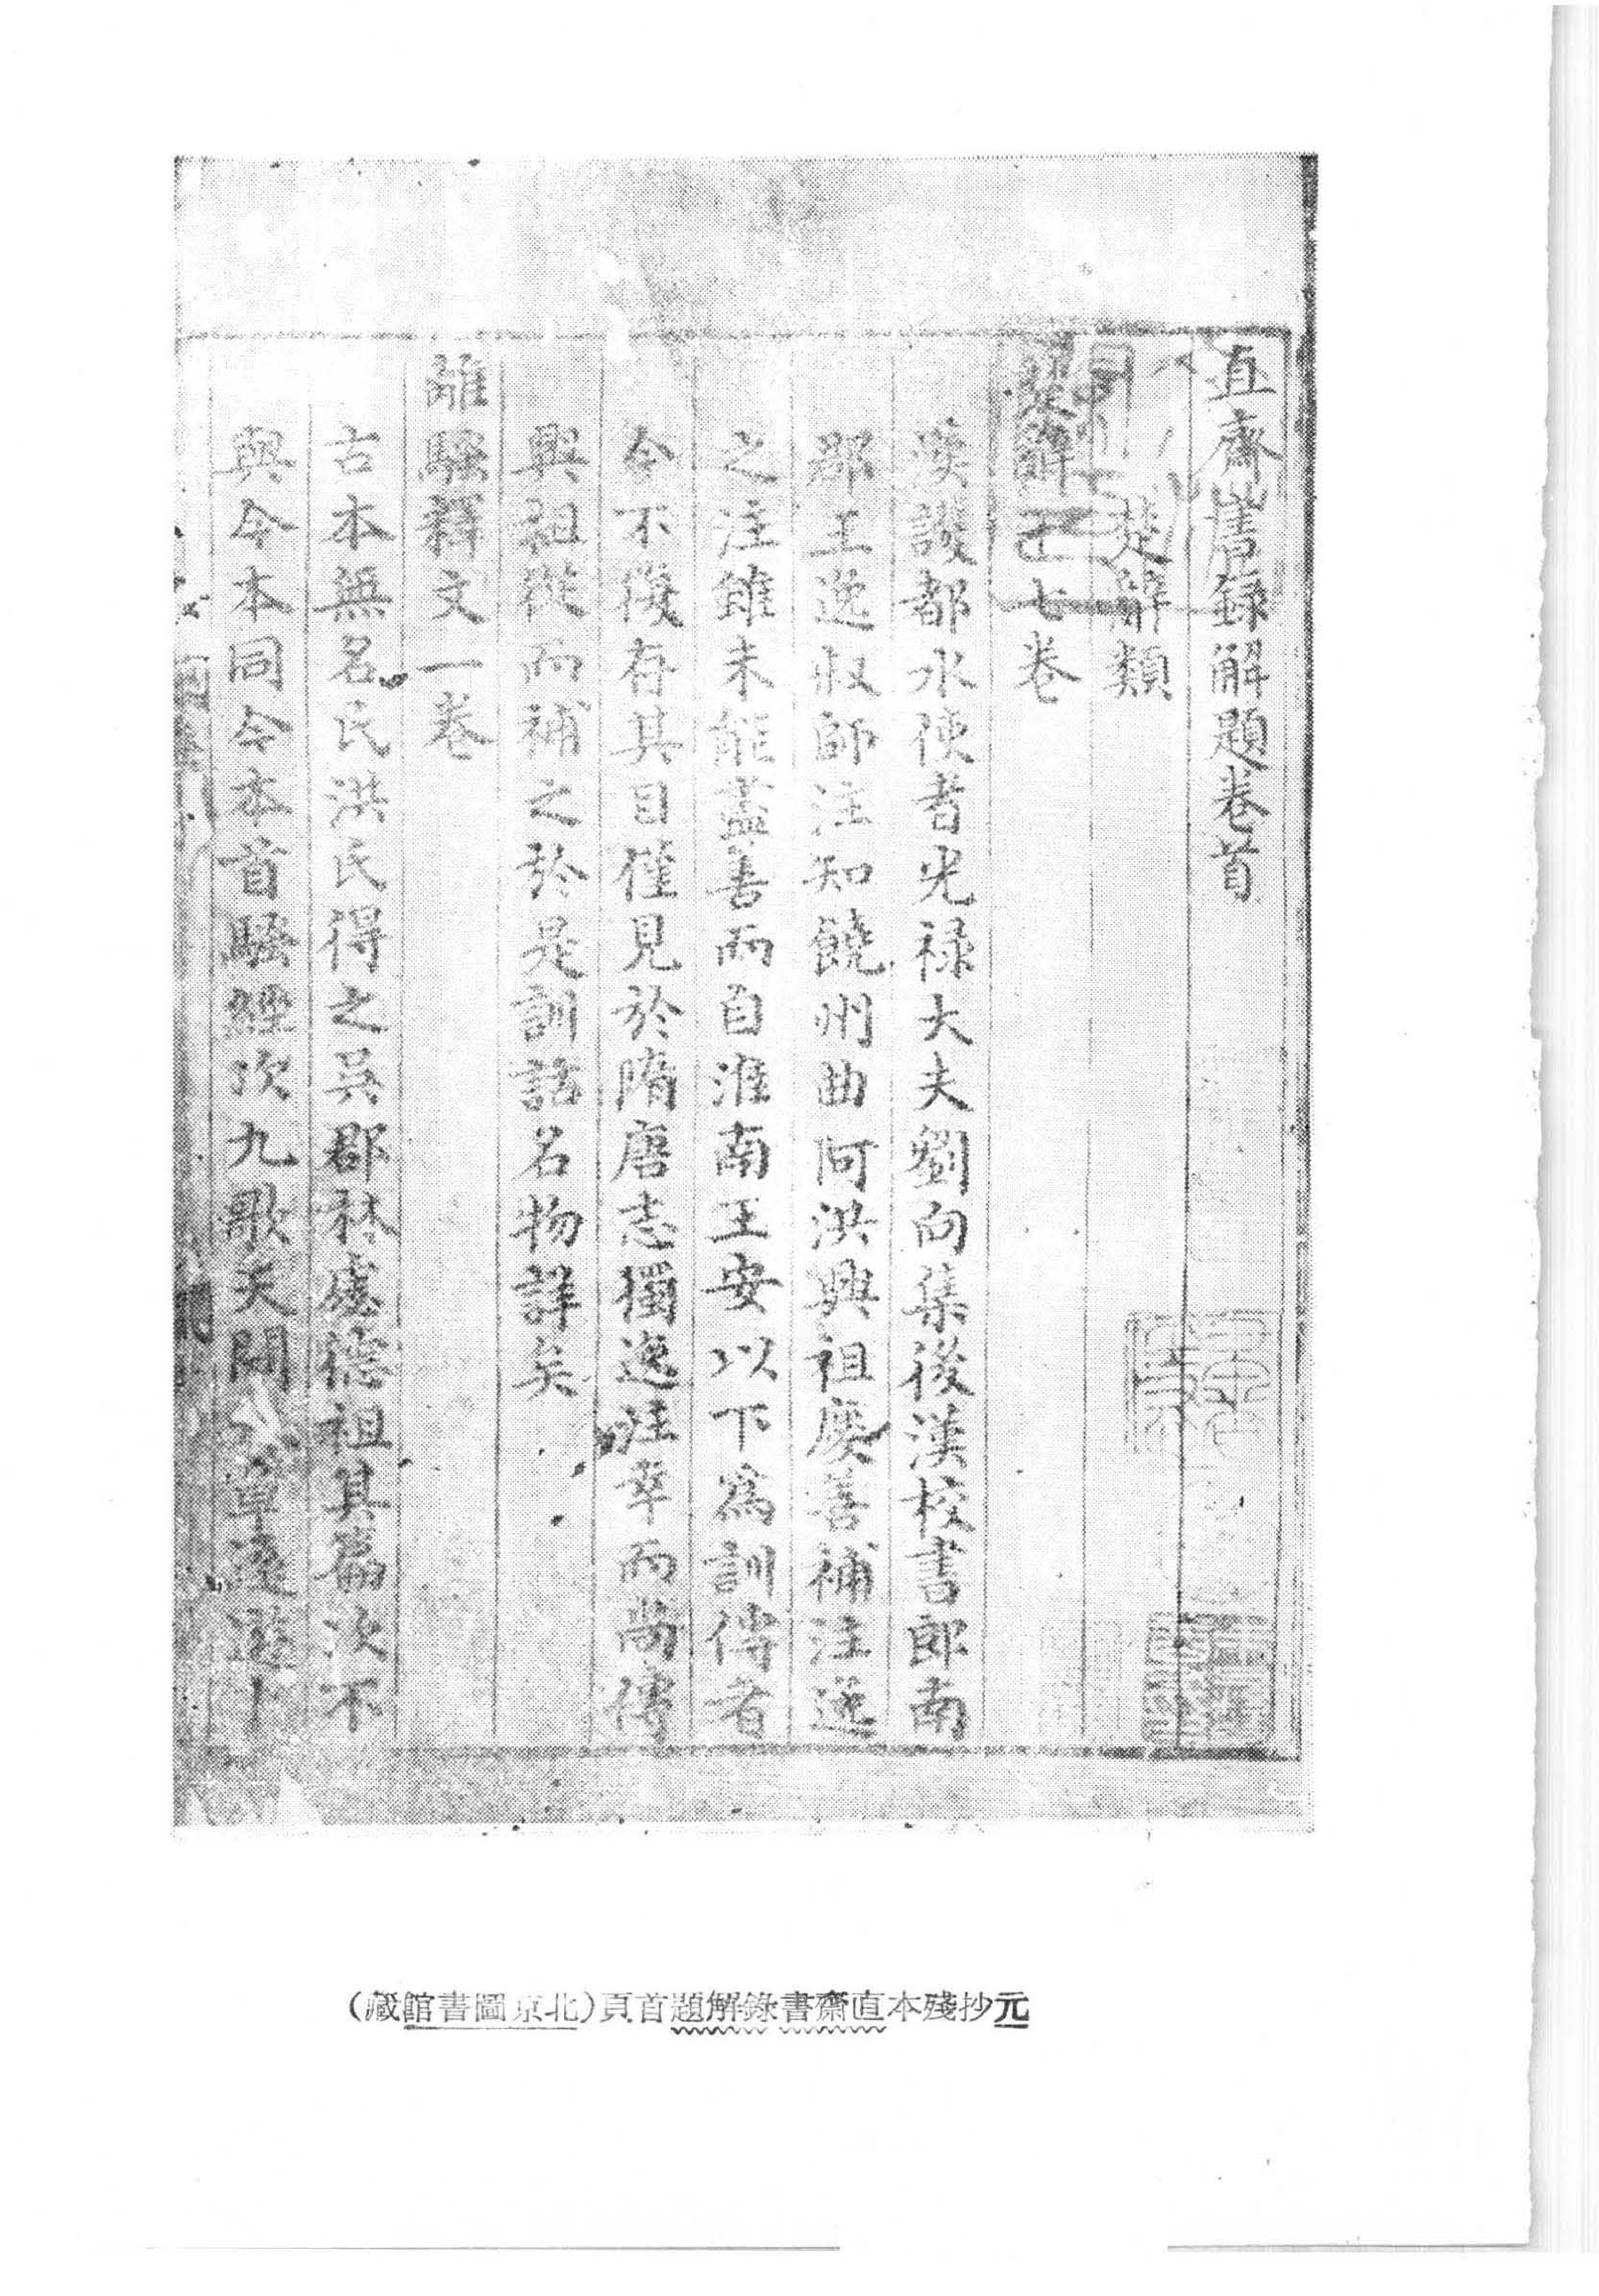 直齋書録解題卷首
楚辭類
楚辭十七卷
漢護都水使者光禄大夫劉向集後漢校書郎南
郡王逸叔師注知饒州曲阿洪興祖慶善補注逸
之注雖未能盡善而自淮南王安以下為訓傳者
今不復存其目僅見於隋唐志獨逸注幸而尚傳
興祖從而補之於是訓詁名物詳矣
離騷釋文一卷
古本無名氏洪氏得之吳郡林虙德祖其篇次不
與今本同今本首騷經次九歌天問九章遠遊卜
元抄殘本直齋書錄解題首頁(北京圖書館藏)